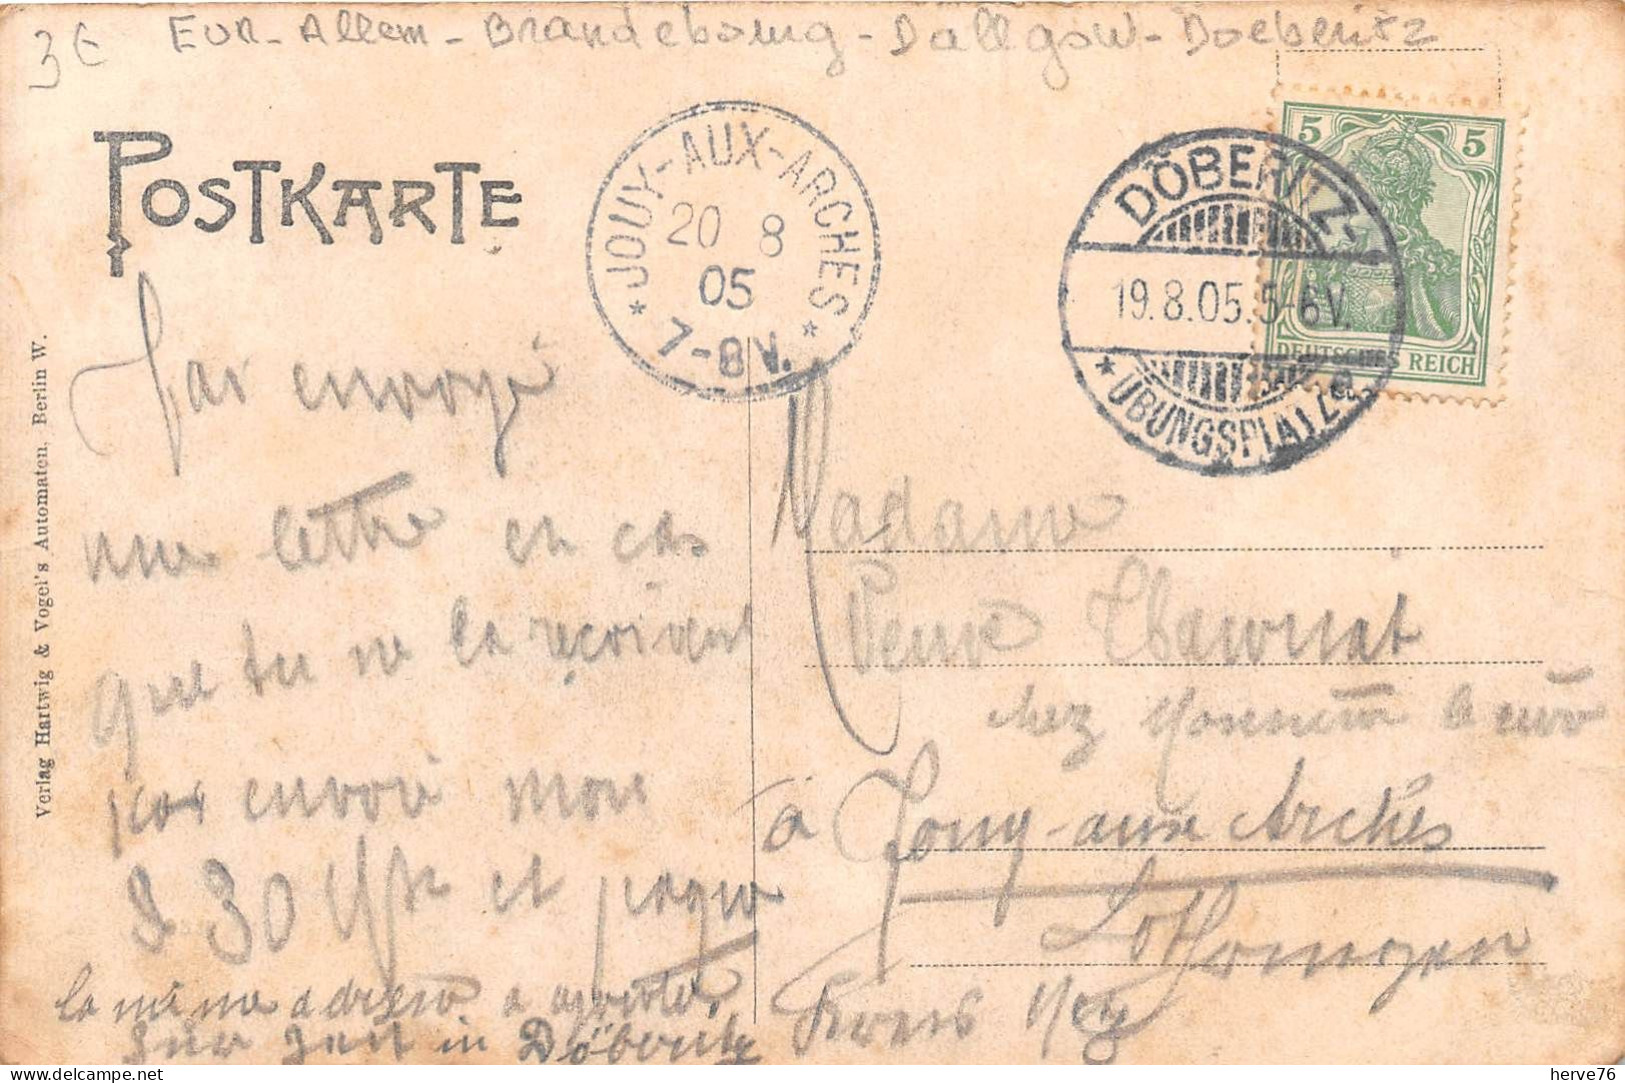 3€ Eur - Allem - Brandebourg - Dallgow - Doeberitz
POSTKARTE
JOUY-AUX-ARCHES
20 8
05
7-8V.
DÖBERITZ-
19.8.05.5-6V.
ÜBUNGSPLATZ
a
5 5
DEUTSCHES REICH
Verlag Hartwig & Vogel's Automaten, Berlin W.
J'ai envoyé
une lettre en cas
que tu ne la reçoivent
pas envoi moi
30 et
la même adresse a ajouter
zur Zeit in Döberitz
Madame
Veuve
chez Monsieur le curé
à Jouy-aux Arches
Lothringen
Kreis Metz
herve76